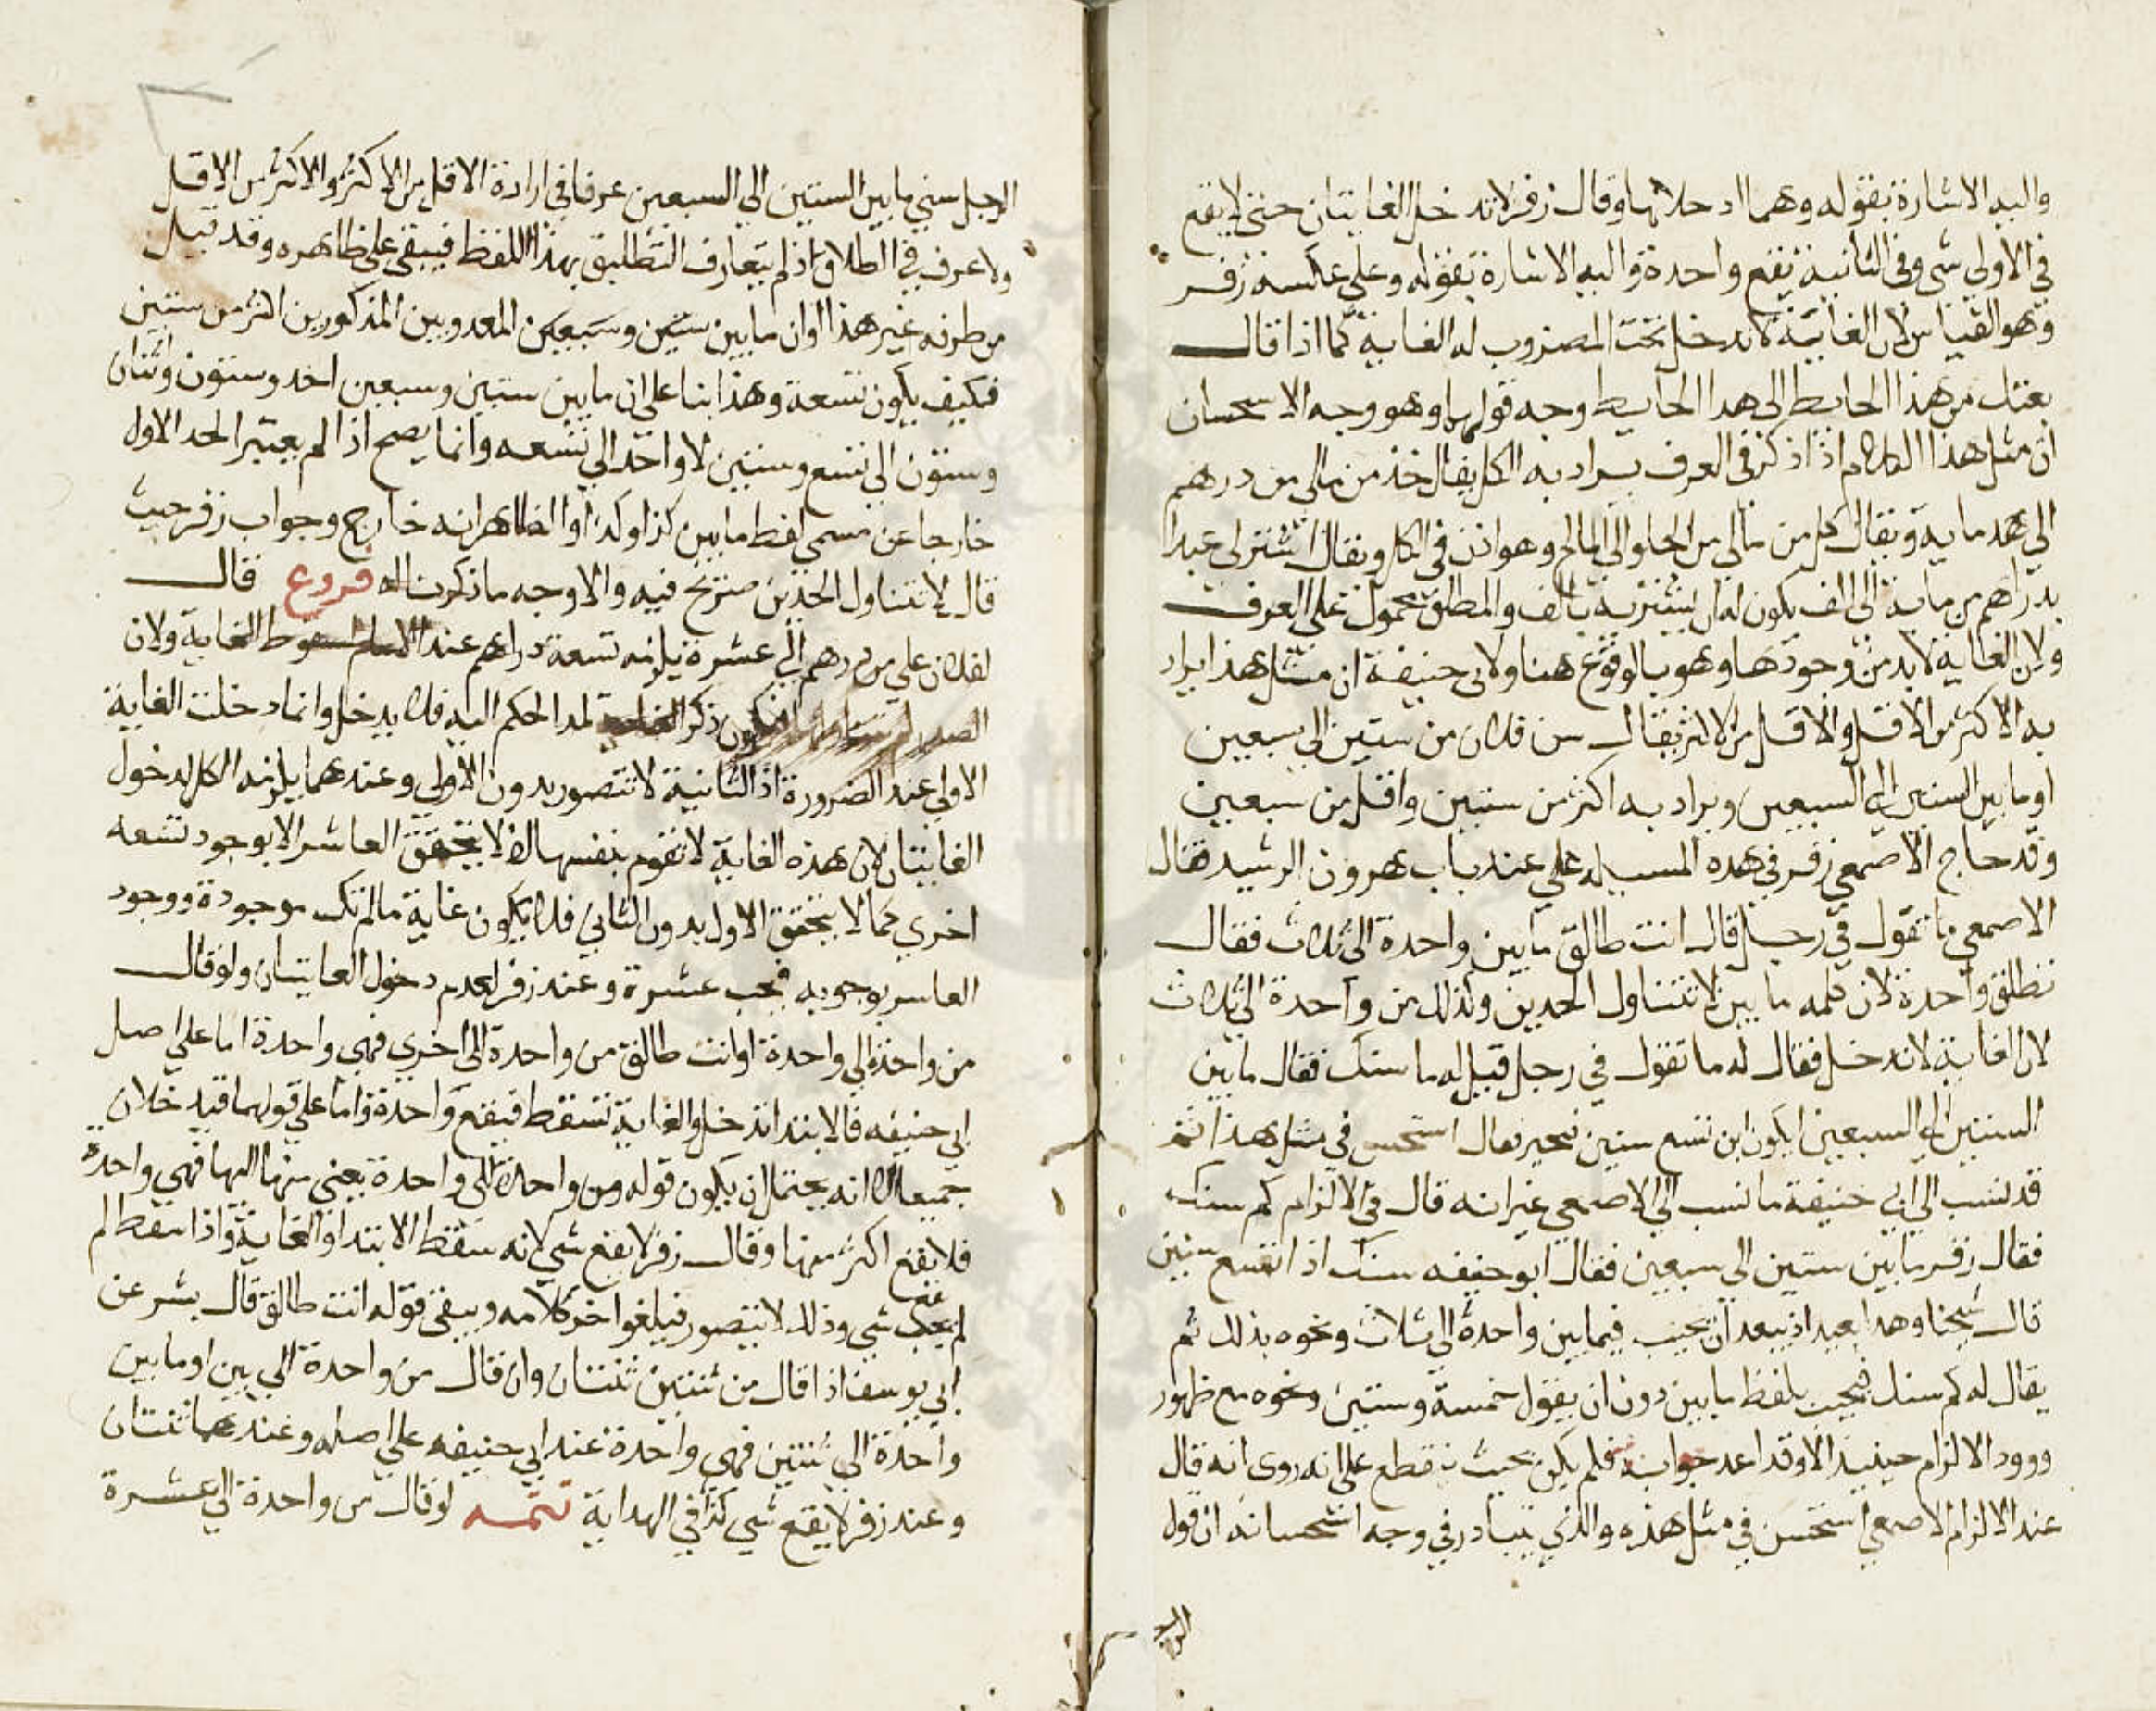 واليه الاشارة بقوله وهما ادخلاتها وقال زفر لا تدخل الغايتان حتى لا يقع
في الاولى شي وفي الثانية تقع واحدة واليه الاشارة بقوله وعلى عكسه زفر
وهو القياس لان الغاية لا تدخل تحت المضروب له الغاية كما اذا قال
بعتك من هذا الحايط الى هدا الحايط وجه قولهما وهو وجه الاستحسان
ان مثل هذا الكلام اذا ذكر في العرف يراد به الكل يقال خذ من مالى من درهم
الى مايه ويقال كل من مالى من الحلو الى المالح وهو اذن في الكل ويقال اشتر لى عبدا
بدراهم من ماية الى الف يكون له ان يشتريه بالف والمطلق محمول على العرف
ولان الغاية لا بد من وجودها وهو بالوقوع هنا ولابى حنيفة ان مثل هذا يراد
به الاكثر من الاقل والاقل من الاكثر يقال سن فلان من ستين الى سبعين
او ما بين الستين الى السبعين ويراد به اكثر من ستين واقل من سبعين
وقد حاج الاصمعي زفر في هده المسيله على عند باب هرون الرشيد فقال
الاصمعي ما تقول في رجل قال انت طالق ما بين واحدة الى ثلاث فقال
تطلق واحدة لان كلمه ما بين لا تتناول الحدين وكذلك من واحدة الى ثلاث
لان الغاية لا تدخل فقال له ما تقول في رجل قيل له ما سنك فقال ما بين
الستين الى السبعين ايكون ابن تسع سنين فتحير فقال استحسن في مثل هذا ثم
قد نسب الى ابي حنيفة ما نسب الى الاصمعي غير انه قال في الالزام كم سنك
فقال زفر ما بين ستين الى سبعين فقال ابو حنيفه سنك اذا تسع سنين
قال شيخنا وهدا بعيد اذ يبعد ان يجيب فيما بين واحدة الى ثلاث ونحوه بذلك ثم
يقال له كم سنك فيجيب بلفظ ما بين دون ان يقول خمسة وستين ونحوه مع ظهور
وورود الالزام حينيد الا وقد اعد جوابه فلم يكن بحيث ينقطع على انه روى انه قال
عند الالزام الاصمعي استحسن في مثل هذه والذي يتبادر في وجه استحسانه ان قول
الرجل سني ما بين الستين الى السبعين عرفا في ارادة الاقل من الاكثر والاكثر من الاقل
ولا عرف في الطلاق اذ لم يتعارف التطليق بهذا اللفظ فيبقى على ظاهره وقد قيل
من طرفه غير هذا وان ما بين ستين وسبعين المعدو بين المذكورين اكثر من ستين
فكيف يكون تسعة وهذا بنا على ان ما بين ستين وسبعين احد وستون واثنان
وستون الى تسع وستين لا واحد الى تسعه وانما يصح اذا لم يعتبر الحد الاول
خارجا عن مسمى لفظ ما بين كذا وكذا والظاهر انه خارج وجواب زفر حيث
قال لا تتناول الحدين صريح فيه والاوجه ما ذكرناه فروع قال
لفلان علي من درهم الى عشرة يلزمه تسعة دراهم عند الامام لسقوط الغاية ولان
فيكون ذكر الغاية لمد الحكم اليه فلا يدخل وانما دخلت الغاية
الاولى عند الضرورة اذ الثانية لا تتصور بدون الاولى وعندهما يلزمه الكل لدخول
الغايتان لان هذه الغاية لا تقوم بنفسها اذ لا يتحقق العاشر الا بوجود تسعه
اخري كما لا يتحقق الاول بدون الثاني فلا يكون غاية ما لم تكن موجودة ووجود
العاسر بوجوبه فيجب عشرة وعند زفر لعدم دخول الغايتان ولو قال
من واحدة الي واحدة او انت طالق من واحدة الى اخرى فهي واحدة اما علي اصل
ابي حنيفه فالابتدا تدخل والغاية تسقط فيقع واحدة واما علي قولهما فيدخلان
جميعا الا انه يحتمل ان يكون قوله ومن واحدة الى واحدة يعني منها اليها فهي واحدة
فلا يقع اكثر منها وقال زفر لا يقع شي لانه سقط الابتدا والغاية واذا سقط لم
يقع
لم يجب شي وذلك لا يتصور فيلغوا اخر كلامه ويبقى قوله انت طالق قال بشر عن
ابي يوسف اذا قال من ثنتين ثنتان وان قال من واحدة الي بين او ما بين
واحدة الي ثنتين فهي واحدة عند ابي حنيفه علي اصله وعندهما ثنتان
وعند زفر لا يقع شي كذا في الهداية تتمه لو قال من واحدة الي عشرة